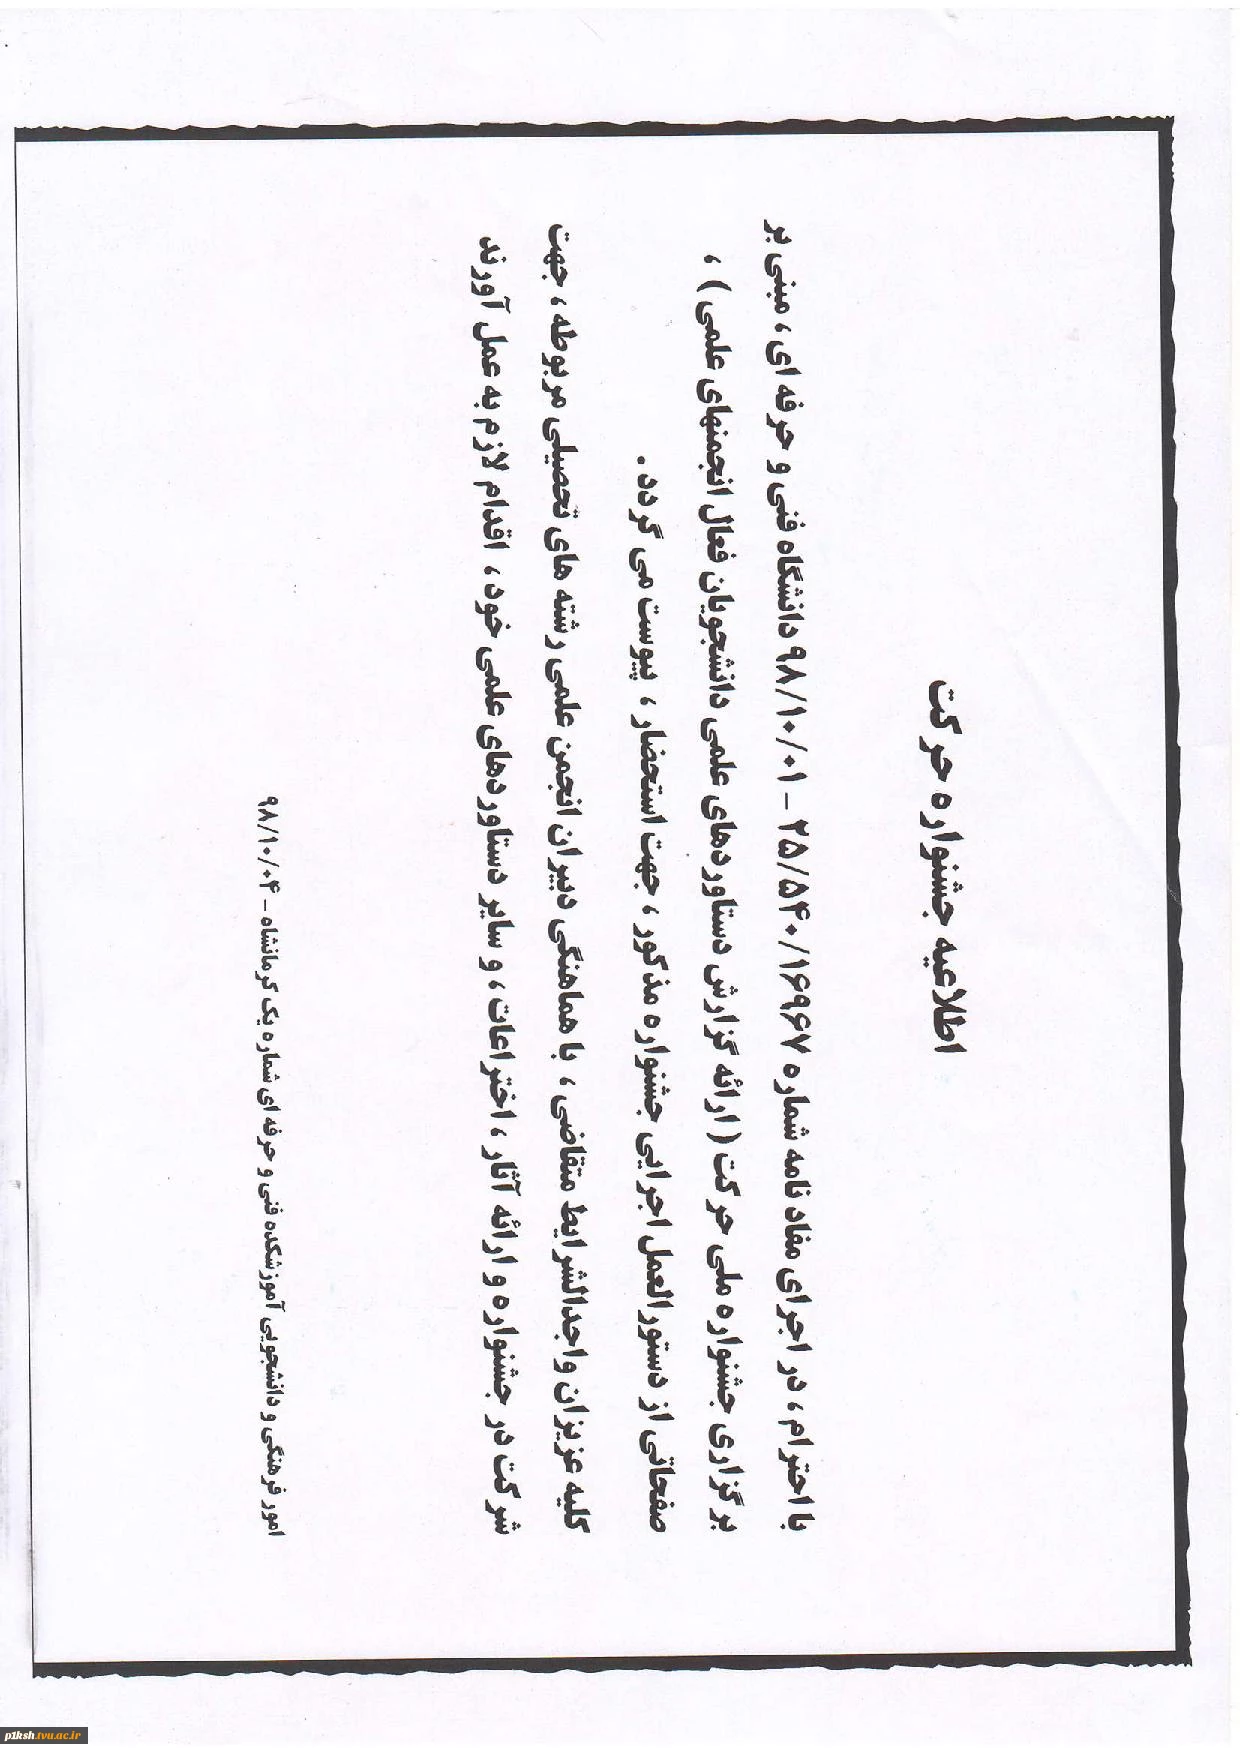 اطلاعیه جشنواره حرکت
با احترام ، در اجرای مفاد نامه شماره ۲۵/۵۴۰/۱۶۹۶۷ - ۹۸/۱۰/۰۱ دانشگاه فنی و حرفه ای ، مبنی بر
برگزاری جشنواره ملی حرکت ( ارائه گزارش دستاوردهای علمی دانشجویان فعال انجمنهای علمی ) ،
صفحاتی از دستورالعمل اجرایی جشنواره مذکور ، جهت استحضار ، پیوست می گردد .
کلیه عزیزان واجدالشرایط متقاضی ، با هماهنگی دبیران انجمن علمی رشته های تحصیلی مربوطه ، جهت
شرکت در جشنواره و ارائه آثار ، اختراعات ، و سایر دستاوردهای علمی خود ، اقدام لازم به عمل آورند
امور فرهنگی و دانشجویی آموزشکده فنی و حرفه ای شماره یک کرمانشاه - ۹۸/۱۰/۰۴
p1ksh.tvu.ac.ir